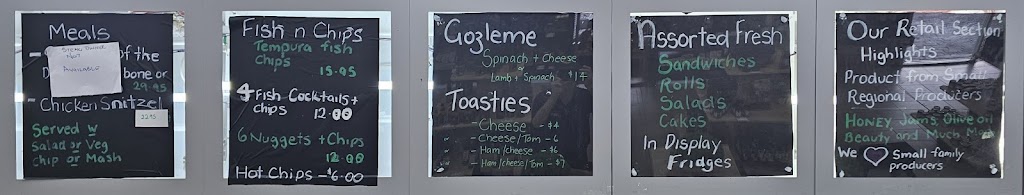 Meals
Steak Dinner
Not
Available
of the
D
bone or
29.95
- Chicken Snitzel
22.95
Served w
Salad or Veg
Chip or Mash
Fish n Chips
Tempura fish
Chips
15.95
4 Fish Cocktails +
chips
12.00
6 Nuggets + Chips
12.00
Hot Chips - $6.00
Gozleme
Spinach + Cheese
or
Lamb + Spinach $14
Toasties
- Cheese - $4
- Cheese/Tom - 6
- Ham/cheese - $6
- Ham/cheese/Tom - $7
Assorted Fresh
Sandwiches
Rolls
Salads
Cakes
In Display
Fridges
Our Retail Section
Highlights
Product from Small
Regional Producers
Honey Jams Olive oil
Beauty and Much More
We ♡ Small family
producers